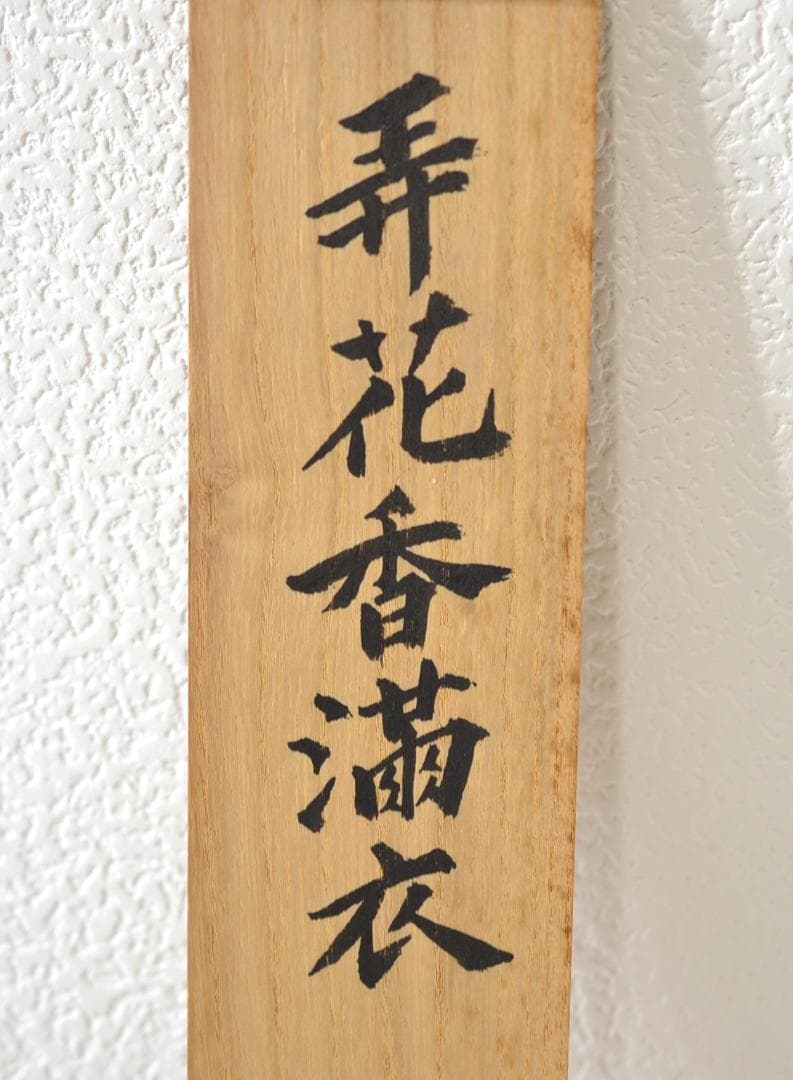 弄花香滿衣